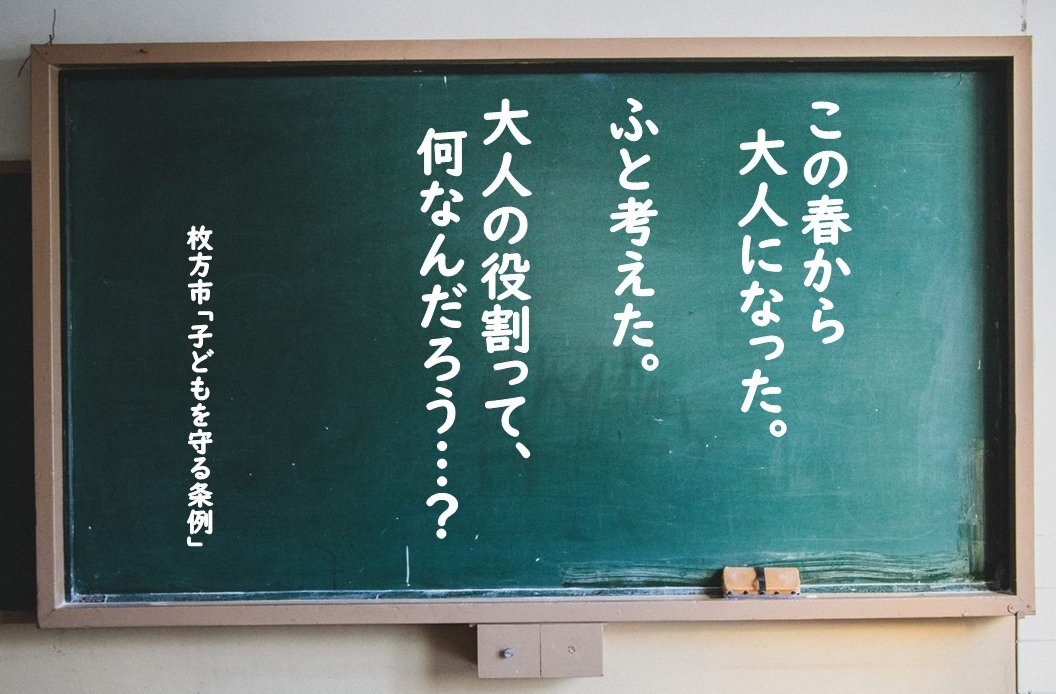 この春から
大人になった。
ふと考えた。
大人の役割って、
何なんだろう…？
枚方市「子どもを守る条例」